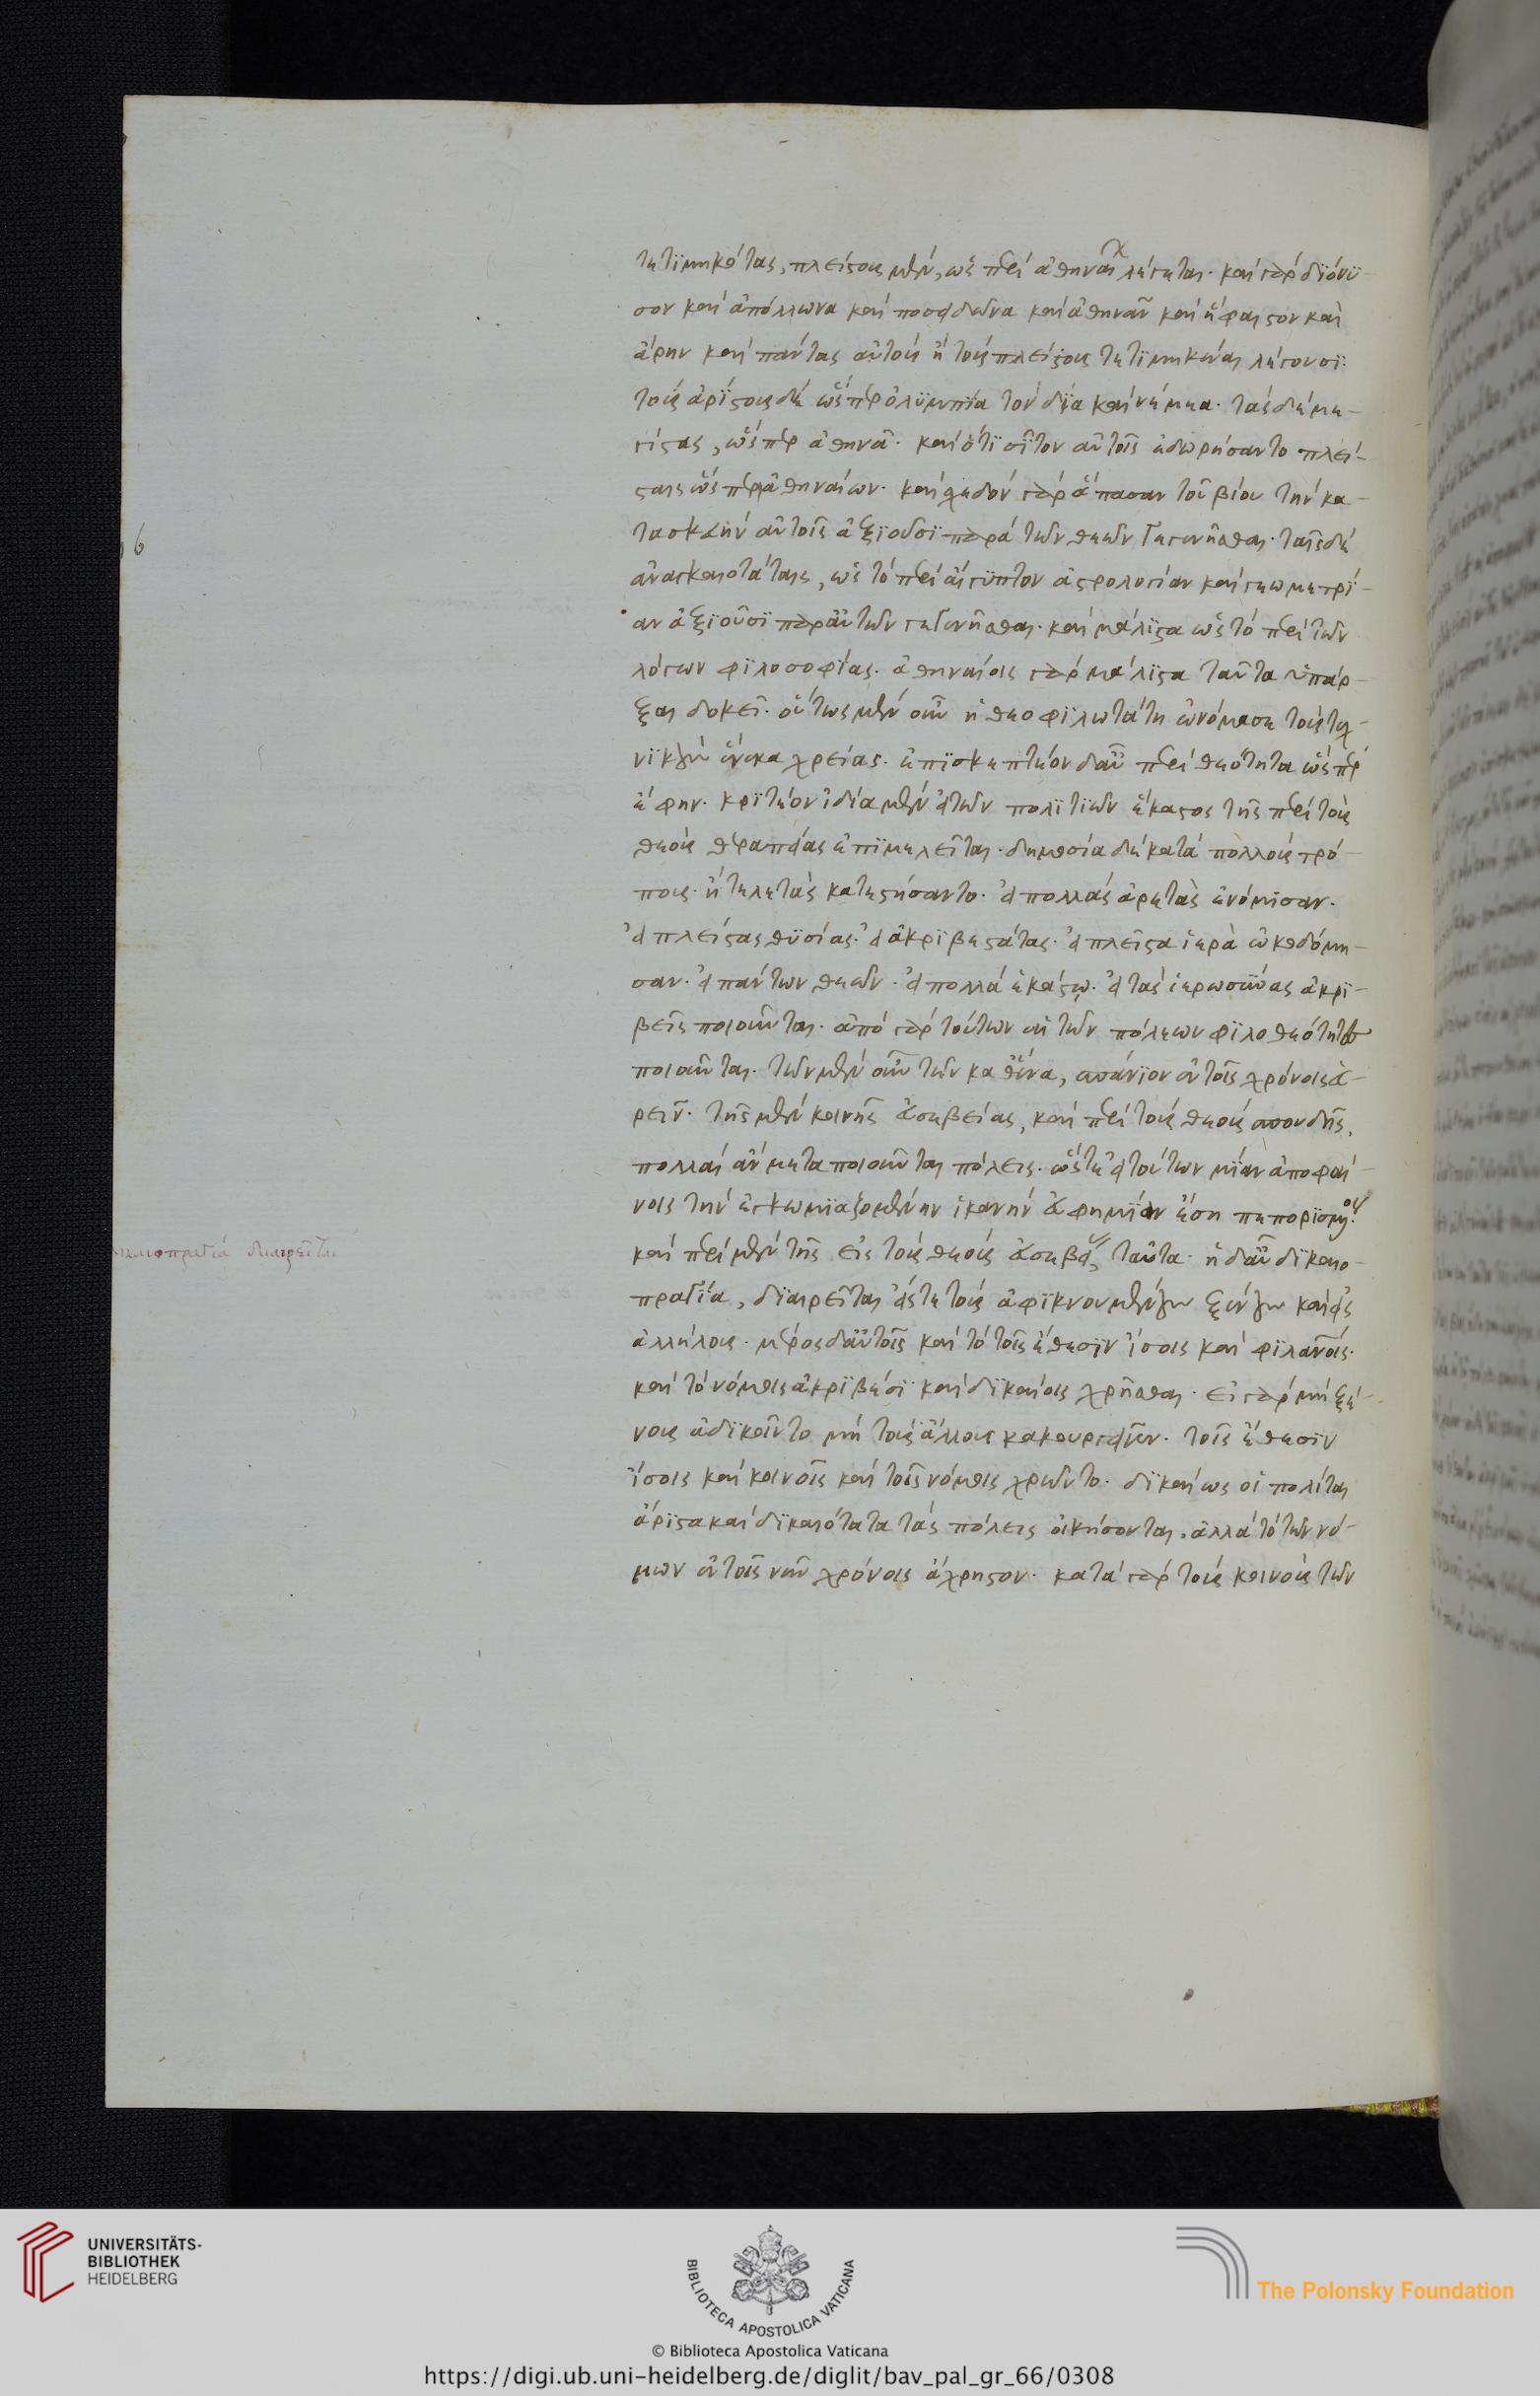 τετιμηκότας, πλείστους μὲν, ὡς περὶ ἀθηναίων λέγεται· καὶ γὰρ διόνυ-
σον καὶ ἀπόλλωνα καὶ ποσειδῶνα καὶ ἀθηνᾶν καὶ ἥφαιστον καὶ
ἄρην καὶ πάντας αὐτοὺς ἢ τοὺς πλείστους τετιμηκέναι λέγουσι·
τοὺς ἀρίστους δὲ ὥσπερ ὀλύμπια τὸν δία καὶ νέμεα· τὰς δὲ με-
γίστας, ὥσπερ ἀθηνᾶ· καὶ ὅτι σῖτον αὐτοῖς ἐδωρήσαντο πλεί-
σταις ὥσπερ ἀθηναίων· καὶ σχεδὸν γὰρ ἅπασαν τοῦ βίου τὴν κα-
τασκευὴν αὐτοῖς ἀξιοῦσι παρὰ τῶν θεῶν γεγενῆσθαι· ταῖς δὲ
6
ἀναγκαιοτάταις, ὡς τὸ περὶ αἴγυπτον ἀστρολογίαν καὶ γεωμετρί-
αν ἀξιοῦσι παρ' αὐτῶν γεγενῆσθαι· καὶ μάλιστα ὡς τὸ περὶ τῶν
λόγων φιλοσοφίας· ἀθηναίοις γὰρ μάλιστα ταῦτα ὑπάρ-
ξαι δοκεῖ· οὕτως μὲν οὖν ἡ θεοφιλωτάτη ὠνόμασε τοὺς τεχ-
νικῶν ἕνεκα χρείας· ἐπισκεπτέον δ' αὖ περὶ θεότητα ὥσπερ
ἔφην· κριτέον ἰδία μὲν εἰ τῶν πολιτῶν ἕκαστος τῆς περὶ τοὺς
θεοὺς θεραπείας ἐπιμελεῖται· δημοσία δὲ κατὰ πολλοὺς τρό-
πους· ἢ τελετὰς κατεστήσαντο· εἰ πολλὰς ἀρετὰς ἐνόμισαν·
εἰ πλείστας θυσίας· εἰ ἀκριβεστάτας· εἰ πλεῖστα ἱερὰ ᾠκοδόμη-
σαν· εἰ πάντων θεῶν· εἰ πολλὰ ἑκάστῳ· εἰ τὰς ἱερωσύνας ἀκρι-
βεῖς ποιοῦνται· ἀπὸ γὰρ τούτων αἱ τῶν πόλεων φιλοθεότητες
ποιοῦνται· τῶν μὲν οὖν τῶν καθ' ἕνα, σπάνιον ἐν τοῖς χρόνοις εὑ-
ρεῖν· τῆς μὲν κοινῆς εὐσεβείας, καὶ περὶ τοὺς θεοὺς σπουδῆς,
πολλαὶ ἀντιμεταποιοῦνται πόλεις· ὥστε εἰ τούτων μίαν ἀποφαί-
νοις τὴν ἐγκωμιαζομένην ἱκανὴν εὐφημίαν ἔσῃ πεπορισμένος·
καὶ περὶ μὲν τῆς εἰς τοὺς θεοὺς εὐσεβείας ταῦτα· ἡ δ' αὖ δικαιο-
δικαιοπραγία διαιρεῖται
πραγία, διαιρεῖται εἴς τε τοὺς ἀφικνουμένων ξένων καὶ εἰς
ἀλλήλους· μέρος δ' αὐτοῖς καὶ τὸ τοῖς ἔθεσιν ἴσοις καὶ φιλανοῖς·
καὶ τὸ νόμοις ἀκριβέσι καὶ δικαίοις χρῆσθαι· εἰ γὰρ μὴ ξέ-
νους ἀδικοῖντο μὴ τοὺς ἄλλους κακουργεῖεν· τοῖς ἔθεσιν
ἴσοις καὶ κοινοῖς καὶ τοῖς νόμοις χρῶντο· δικαίως οἱ πολῖται
ἄριστα καὶ δικαιότατα τὰς πόλεις οἰκήσονται· ἀλλὰ τὸ τῶν νό-
μων ἐν τοῖς νῦν χρόνοις ἄχρηστον· κατὰ γὰρ τοὺς κοινοὺς τῶν
UNIVERSITÄTS-
BIBLIOTHEK
HEIDELBERG
BIBLIOTECA APOSTOLICA VATICANA
The Polonsky Foundation
© Biblioteca Apostolica Vaticana
https://digi.ub.uni-heidelberg.de/diglit/bav_pal_gr_66/0308